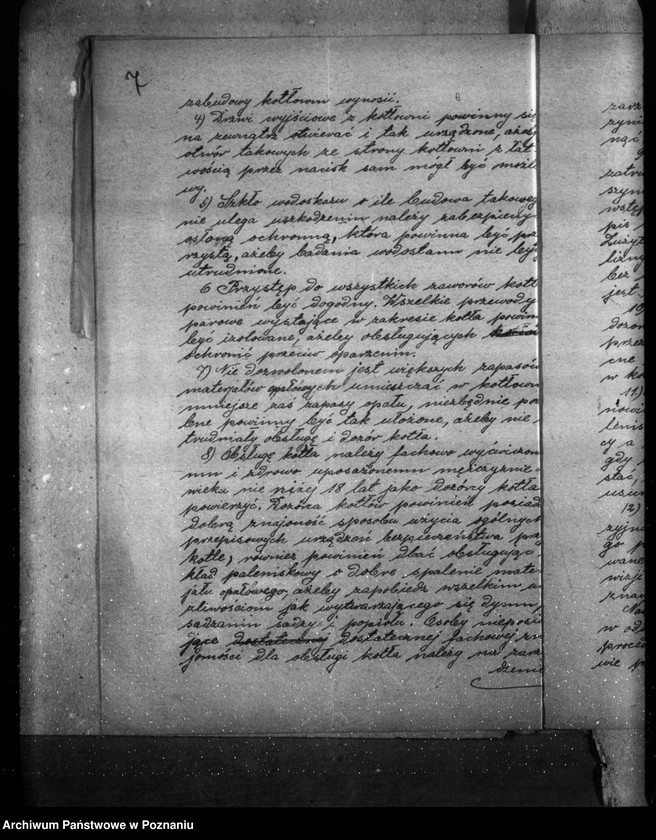 7
zabudowy kotłowni wynosić.
4) Drzwi wyjściowe z kotłowni powinny się
na zewnątrz otwierać i tak urządzone, ażeby
otwór takowych ze strony kotłowni z łat
wością przez nacisk sam mógł być możli
wy.
5) Szkło wodoskazu o ile budowa takowego
nie ulega uszkodzeniu należy zabezpieczyć
osłoną ochronną, która powinna być prze
rzystą, ażeby badania wodostanu nie były
utrudnione.
6 Przystęp do wszystkich zaworów kotł
powinien być dogodny. Wszelkie przewody
parowe wystające w zakresie kotła powin
być izolowane, ażeby obsługujących
ochronić przeciw oparzeniu.
7) Nie dozwolonem jest większych zapasów
materjałów opałowych umieszczać w kotłowni
mniejsze zaś zapasy opału, niezbędnie po
bne powinny być tak ułożone, ażeby nie
trudniały obsługę i dozór kotła.
8) Obsługę kotła należy fachowo wyćwiczone
mu i zdrowo uposażonemu mężczyźnie
wieku nie niżej 18 lat jako dozórcy kotła
powierzyć. Dozórca kotłów powinien posiad
dobrą znajomość sposobu użycia ogólnych
przepisowych urządzeń bezpieczeństwa prz
kotle, również powinien dbać obsługując
kład paleniskowy o dobre spalenie mate
jału opałowego, ażeby zapobiedz wszelkim u
źliwościom jak wytwarzającego się dymu,
sadzaniu sadzy i popiołu. Osoby nieposia
jące dostatecznej dostatecznej fachowej zn
jomości dla obsługi kotła należy na zarz
dzenie
zarz
zyni
nąć
9
zatru
szym
wstęp
pis
Zużyt
liżny
bez
jest
10
dozor
przez
cne
w ko
11)
nowi
lenis
cy a
gdy
stać,
usun
12)
zyjn
go p
wane
wizje
znaw
Cho
w od
proce
wie p
Archiwum Państwowe w Poznaniu